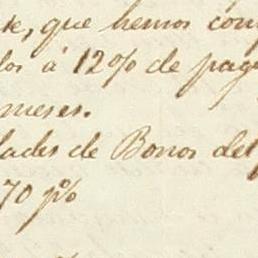 que hemos com
los á 12% de pag
meses.
lades de Bonos del
70 p%